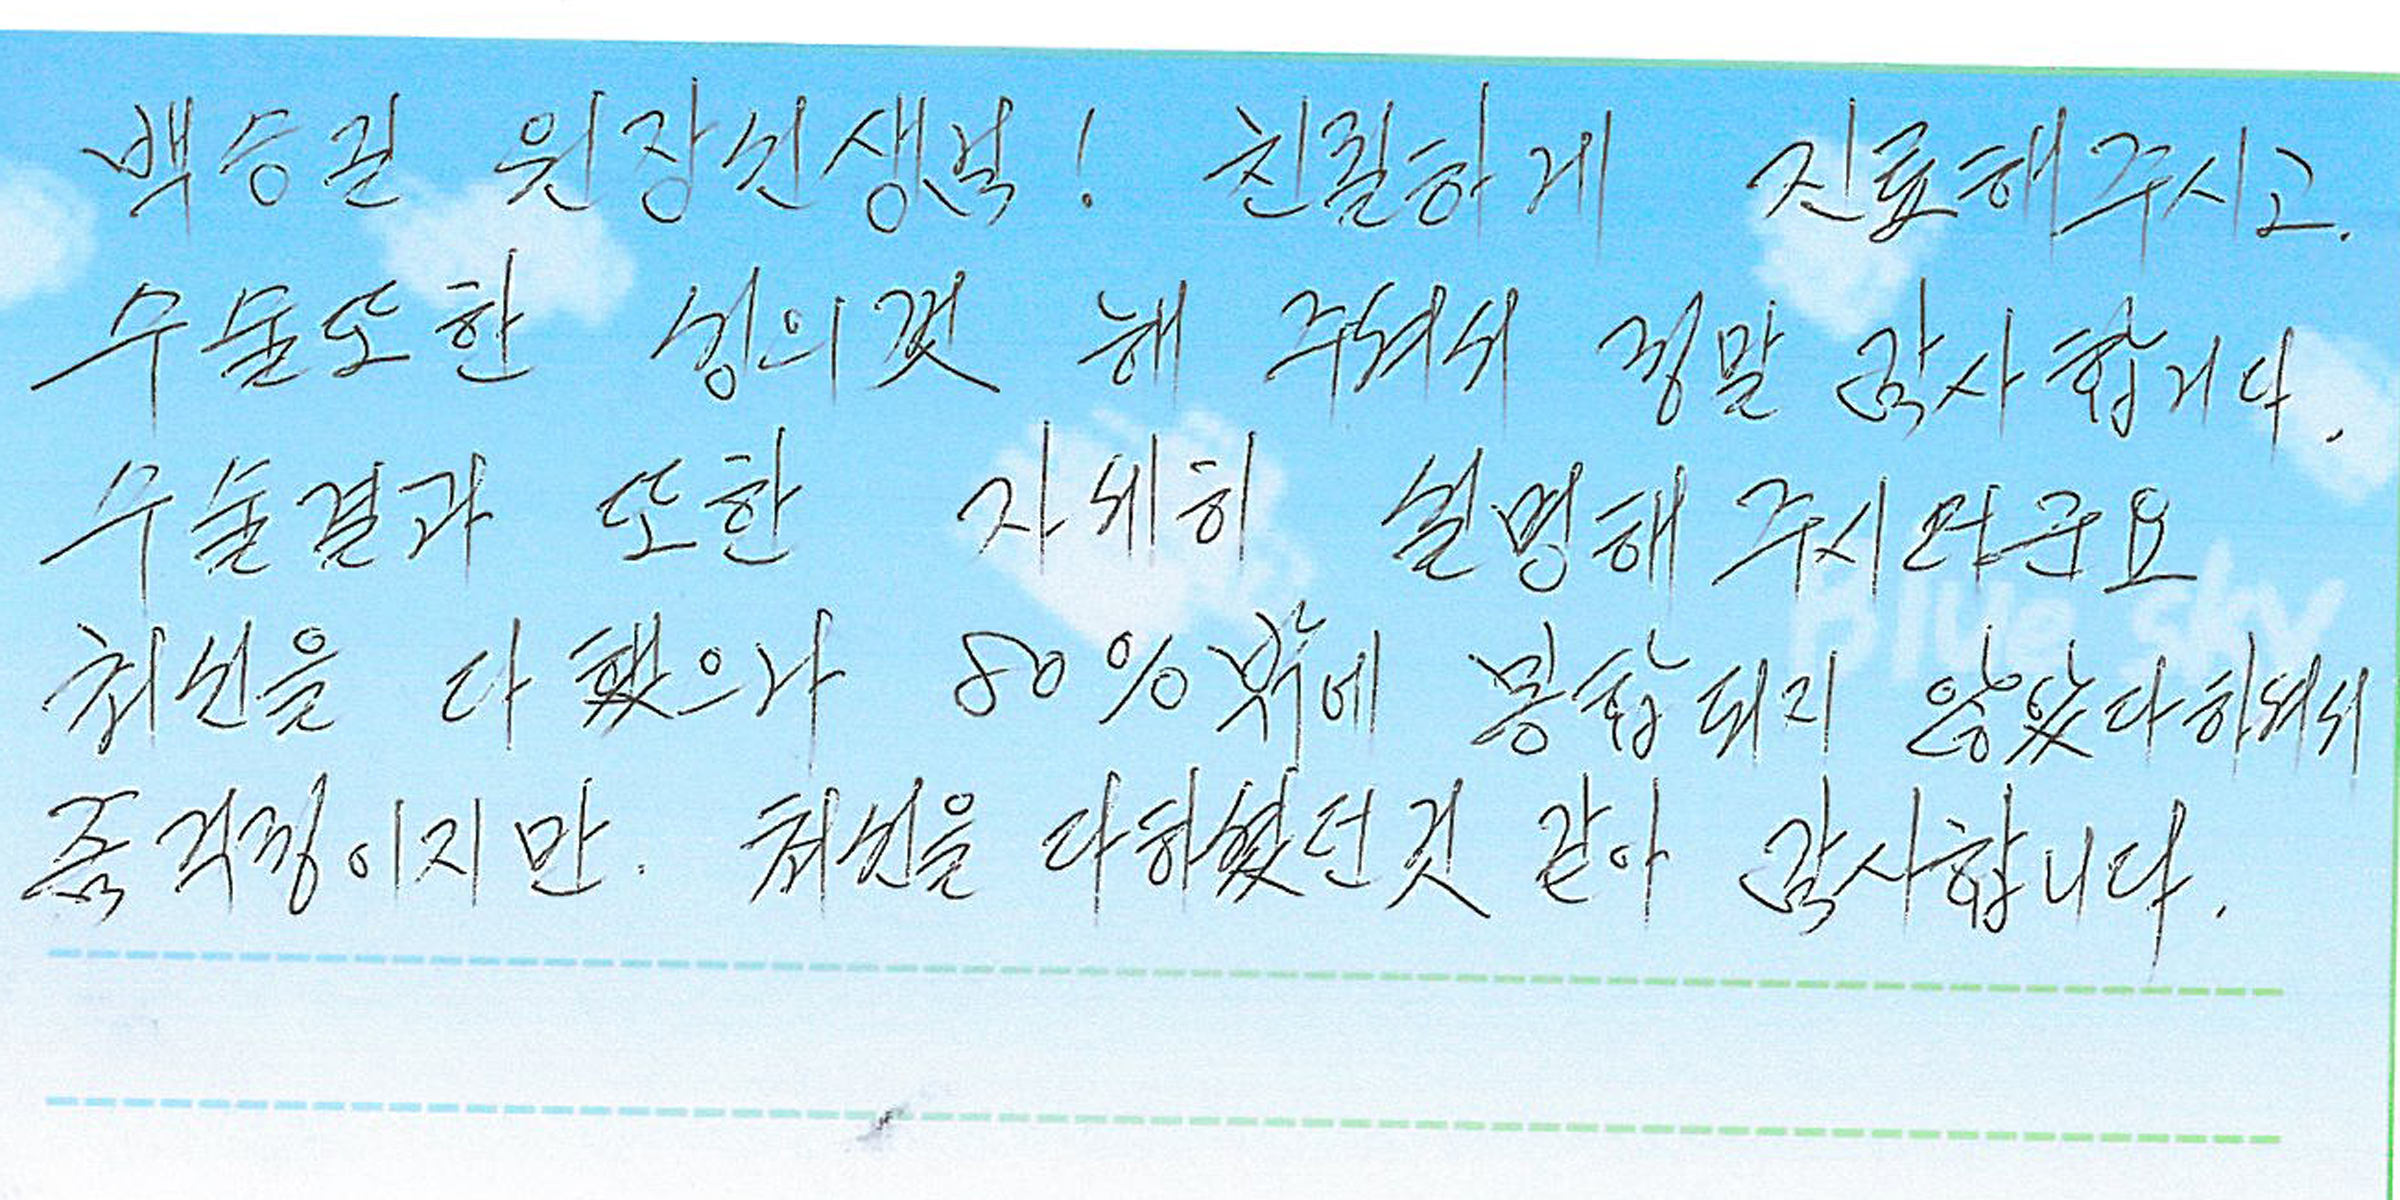 백승권 원장선생님! 친절하게 진료해주시고.
수술또한 성의껏 해 주셔서 정말 감사합니다.
수술결과 또한 자세히 설명해 주시더군요
Blue sky
최선을 다 했으나 80%밖에 봉합되지 않았다하셔서
좀 걱정이지만. 최선을 다하였던것 같아 감사합니다.